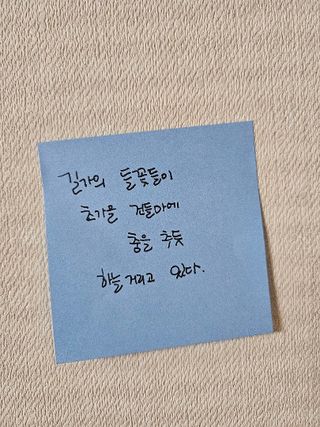 길가의 들꽃들이
초가을 건들마에
춤을 추듯
하늘거리고 있다.